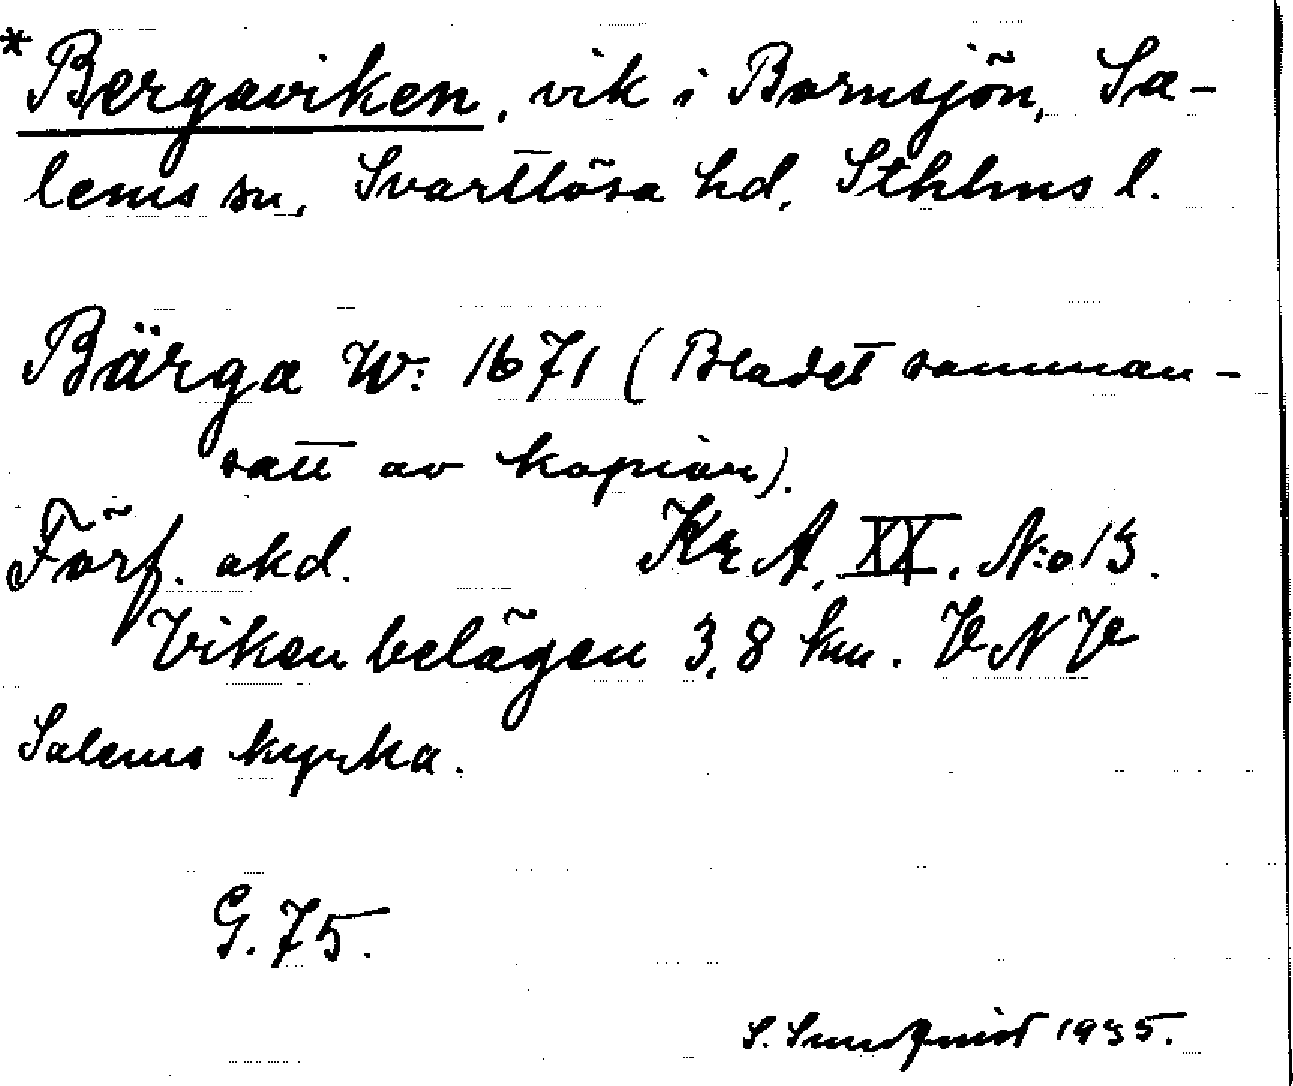 *Bergaviken, vik i Bornsjön, Sa-
lems sn, Svartlösa hd, Sthlms l.
Bärga W: 1671 (Bladet samman-
satt av kopior).
Förf. okd. Kr A, XX, N:o 13.
Viken belägen 3,8 km. VNV
Salems kyrka.
G. 75.
S. Sundquist 1935.